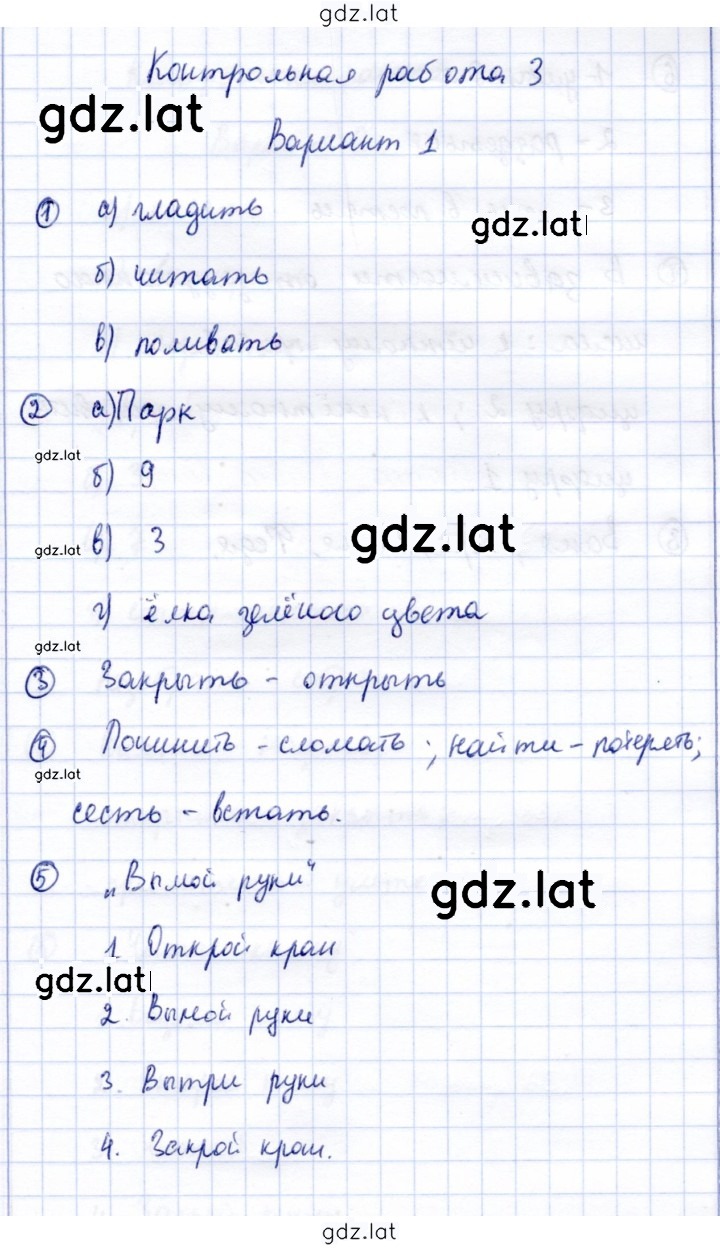 gdz.lat
Контрольная работа 3
gdz.lat
Вариант 1
① а) гладить
gdz.lat
б) читать
в) поливать
② а) Парк
gdz.lat
б) 9
gdz.lat
в) 3
gdz.lat
г) ёлка зелёного цвета
gdz.lat
③ Закрыть - открыть
④ Починить - сломать; найти - потерять;
gdz.lat
сесть - встать.
⑤ „Вымой руки“
gdz.lat
1. Открой кран
gdz.lat
2. Вымой руки
3. Вытри руки
4. Закрой кран.
gdz.lat